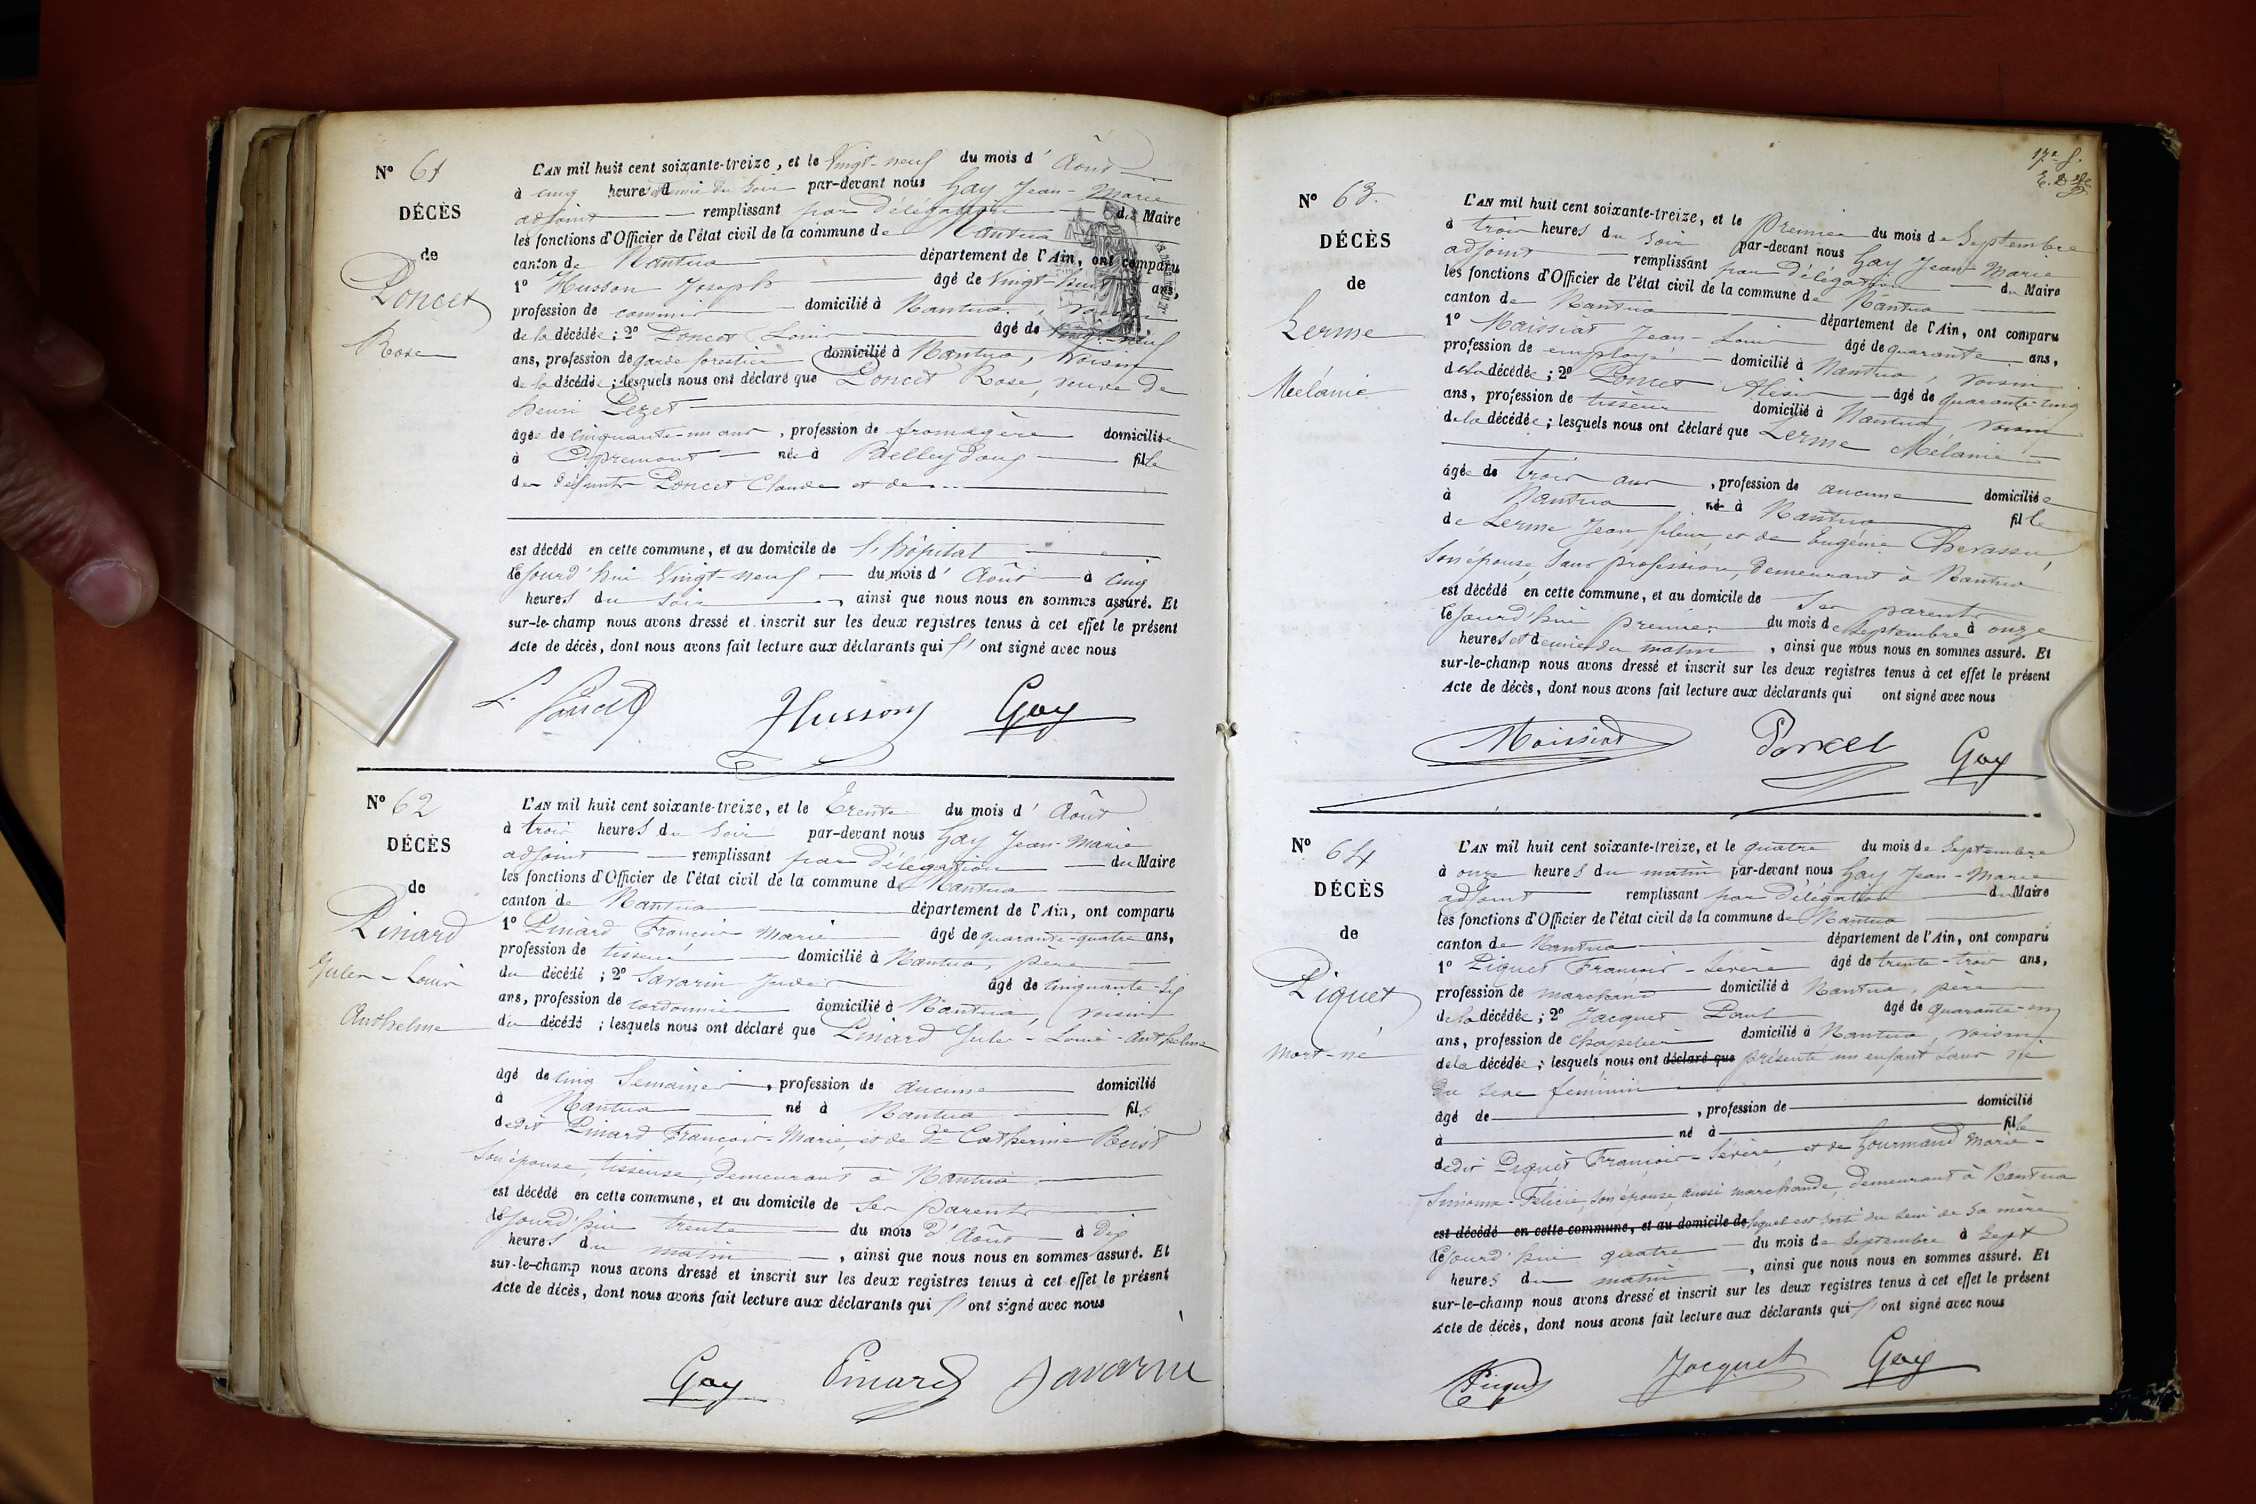 N° 61
DÉCÈS
de
Poncet
Rose
L'AN mil huit cent soixante-treize, et le Vingt-neuf du mois d'Août
à cinq heures et demie du Soir par-devant nous Gay Jean-Marie
adjoint remplissant par délégation du Maire
les fonctions d'Officier de l'état civil de la commune de Nantua
canton de Nantua département de l'Ain, ont comparu
1° Husson Joseph âgé de Vingt-huit ans,
profession de commis domicilié à Nantua, voisin
de la décédée; 2° Poncet Louis âgé de vingt-neuf
ans, profession de garde forestier domicilié à Nantua, voisin
de la décédée; lesquels nous ont déclaré que Poncet Rose, veuve de
henri Pezet
âgée de cinquante-un ans, profession de fromagère domiciliée
à Apremont née à Belleydoux fille
des défunts Poncet Claude et de ...
est décédé en cette commune, et au domicile de l'hôpital
cejourd'hui Vingt-neuf du mois d'Août à cinq
heures du soir, ainsi que nous nous en sommes assuré. Et
sur-le-champ nous avons dressé et inscrit sur les deux registres tenus à cet effet le présent
Acte de décès, dont nous avons fait lecture aux déclarants qui ont signé avec nous
L. Poncet JHusson Gay
N° 62
DÉCÈS
de
Pinard
Jules-Louis
Anthelme
L'AN mil huit cent soixante-treize, et le Trente du mois d'Août
à trois heures du Soir par-devant nous Gay Jean-Marie
adjoint remplissant par délégation du Maire
les fonctions d'Officier de l'état civil de la commune de Nantua
canton de Nantua département de l'Ain, ont comparu
1° Pinard François Marie âgé de quarante-quatre ans,
profession de tisseur domicilié à Nantua, père
du décédé; 2° Savarin Jules âgé de cinquante-six
ans, profession de cordonnier domicilié à Nantua, voisin
du décédé; lesquels nous ont déclaré que Pinard Jules-Louis-Anthelme
âgé de cinq Semaines, profession de aucune domicilié
à Nantua né à Nantua fils
dedit Pinard François-Marie, et de de Catherine Benoit
son épouse, tisseuse, demeurant à Nantua
est décédé en cette commune, et au domicile de ses parents
cejourd'hui trente du mois d'Août à Dix
heures du matin, ainsi que nous nous en sommes assuré. Et
sur-le-champ nous avons dressé et inscrit sur les deux registres tenus à cet effet le présent
Acte de décès, dont nous avons fait lecture aux déclarants qui ont signé avec nous
Gay Pinard Savarin
17e f.
N° 63
DÉCÈS
de
Lerme
Mélanie
L'AN mil huit cent soixante-treize, et le Premier du mois de Septembre
à trois heures du Soir par-devant nous Gay Jean-Marie
adjoint remplissant par délégation du Maire
les fonctions d'Officier de l'état civil de la commune de Nantua
canton de Nantua département de l'Ain, ont comparu
1° Maissiat Jean-Louis âgé de quarante ans,
profession de employé domicilié à Nantua, voisin
de la décédée; 2° Poncet Alexis âgé de quarante-cinq
ans, profession de tisseur domicilié à Nantua, voisin
de la décédée; lesquels nous ont déclaré que Lerme Mélanie
âgée de trois ans, profession de aucune domiciliée
à Nantua né à Nantua fille
de Lerme Jean, fileur, et de Eugénie Chevassu,
son épouse, sans profession, demeurant à Nantua
est décédé en cette commune, et au domicile de ses parents
cejourd'hui premier du mois de Septembre à onze
heures et demie du matin, ainsi que nous nous en sommes assuré. Et
sur-le-champ nous avons dressé et inscrit sur les deux registres tenus à cet effet le présent
Acte de décès, dont nous avons fait lecture aux déclarants qui ont signé avec nous
Maissiat Poncet Gay
N° 64
DÉCÈS
de
Piquet
mort-né
L'AN mil huit cent soixante-treize, et le quatre du mois de Septembre
à onze heures du matin par-devant nous Gay Jean-Marie
adjoint remplissant par délégation du Maire
les fonctions d'Officier de l'état civil de la commune de Nantua
canton de Nantua département de l'Ain, ont comparu
1° Piquet François-Sévère âgé de trente-trois ans,
profession de marchand domicilié à Nantua, père
de la décédée; 2° Jacquet Paul âgé de quarante-un
ans, profession de chapelier domicilié à Nantua, voisin
de la décédée; lesquels nous ont déclaré que présenté un enfant sans vie
du sexe féminin
âgé de, profession de domicilié
à né à fille
dedit Piquet François-Sévère, et de Gourmand Marie-
Félicie, son épouse, aussi marchande, demeurant à Nantua
est décédé en cette commune, et au domicile de lequel est sorti du sein de sa mère
cejourd'hui quatre du mois de Septembre à Sept
heures du matin, ainsi que nous nous en sommes assuré. Et
sur-le-champ nous avons dressé et inscrit sur les deux registres tenus à cet effet le présent
Acte de décès, dont nous avons fait lecture aux déclarants qui ont signé avec nous
Piquet Jacquet Gay